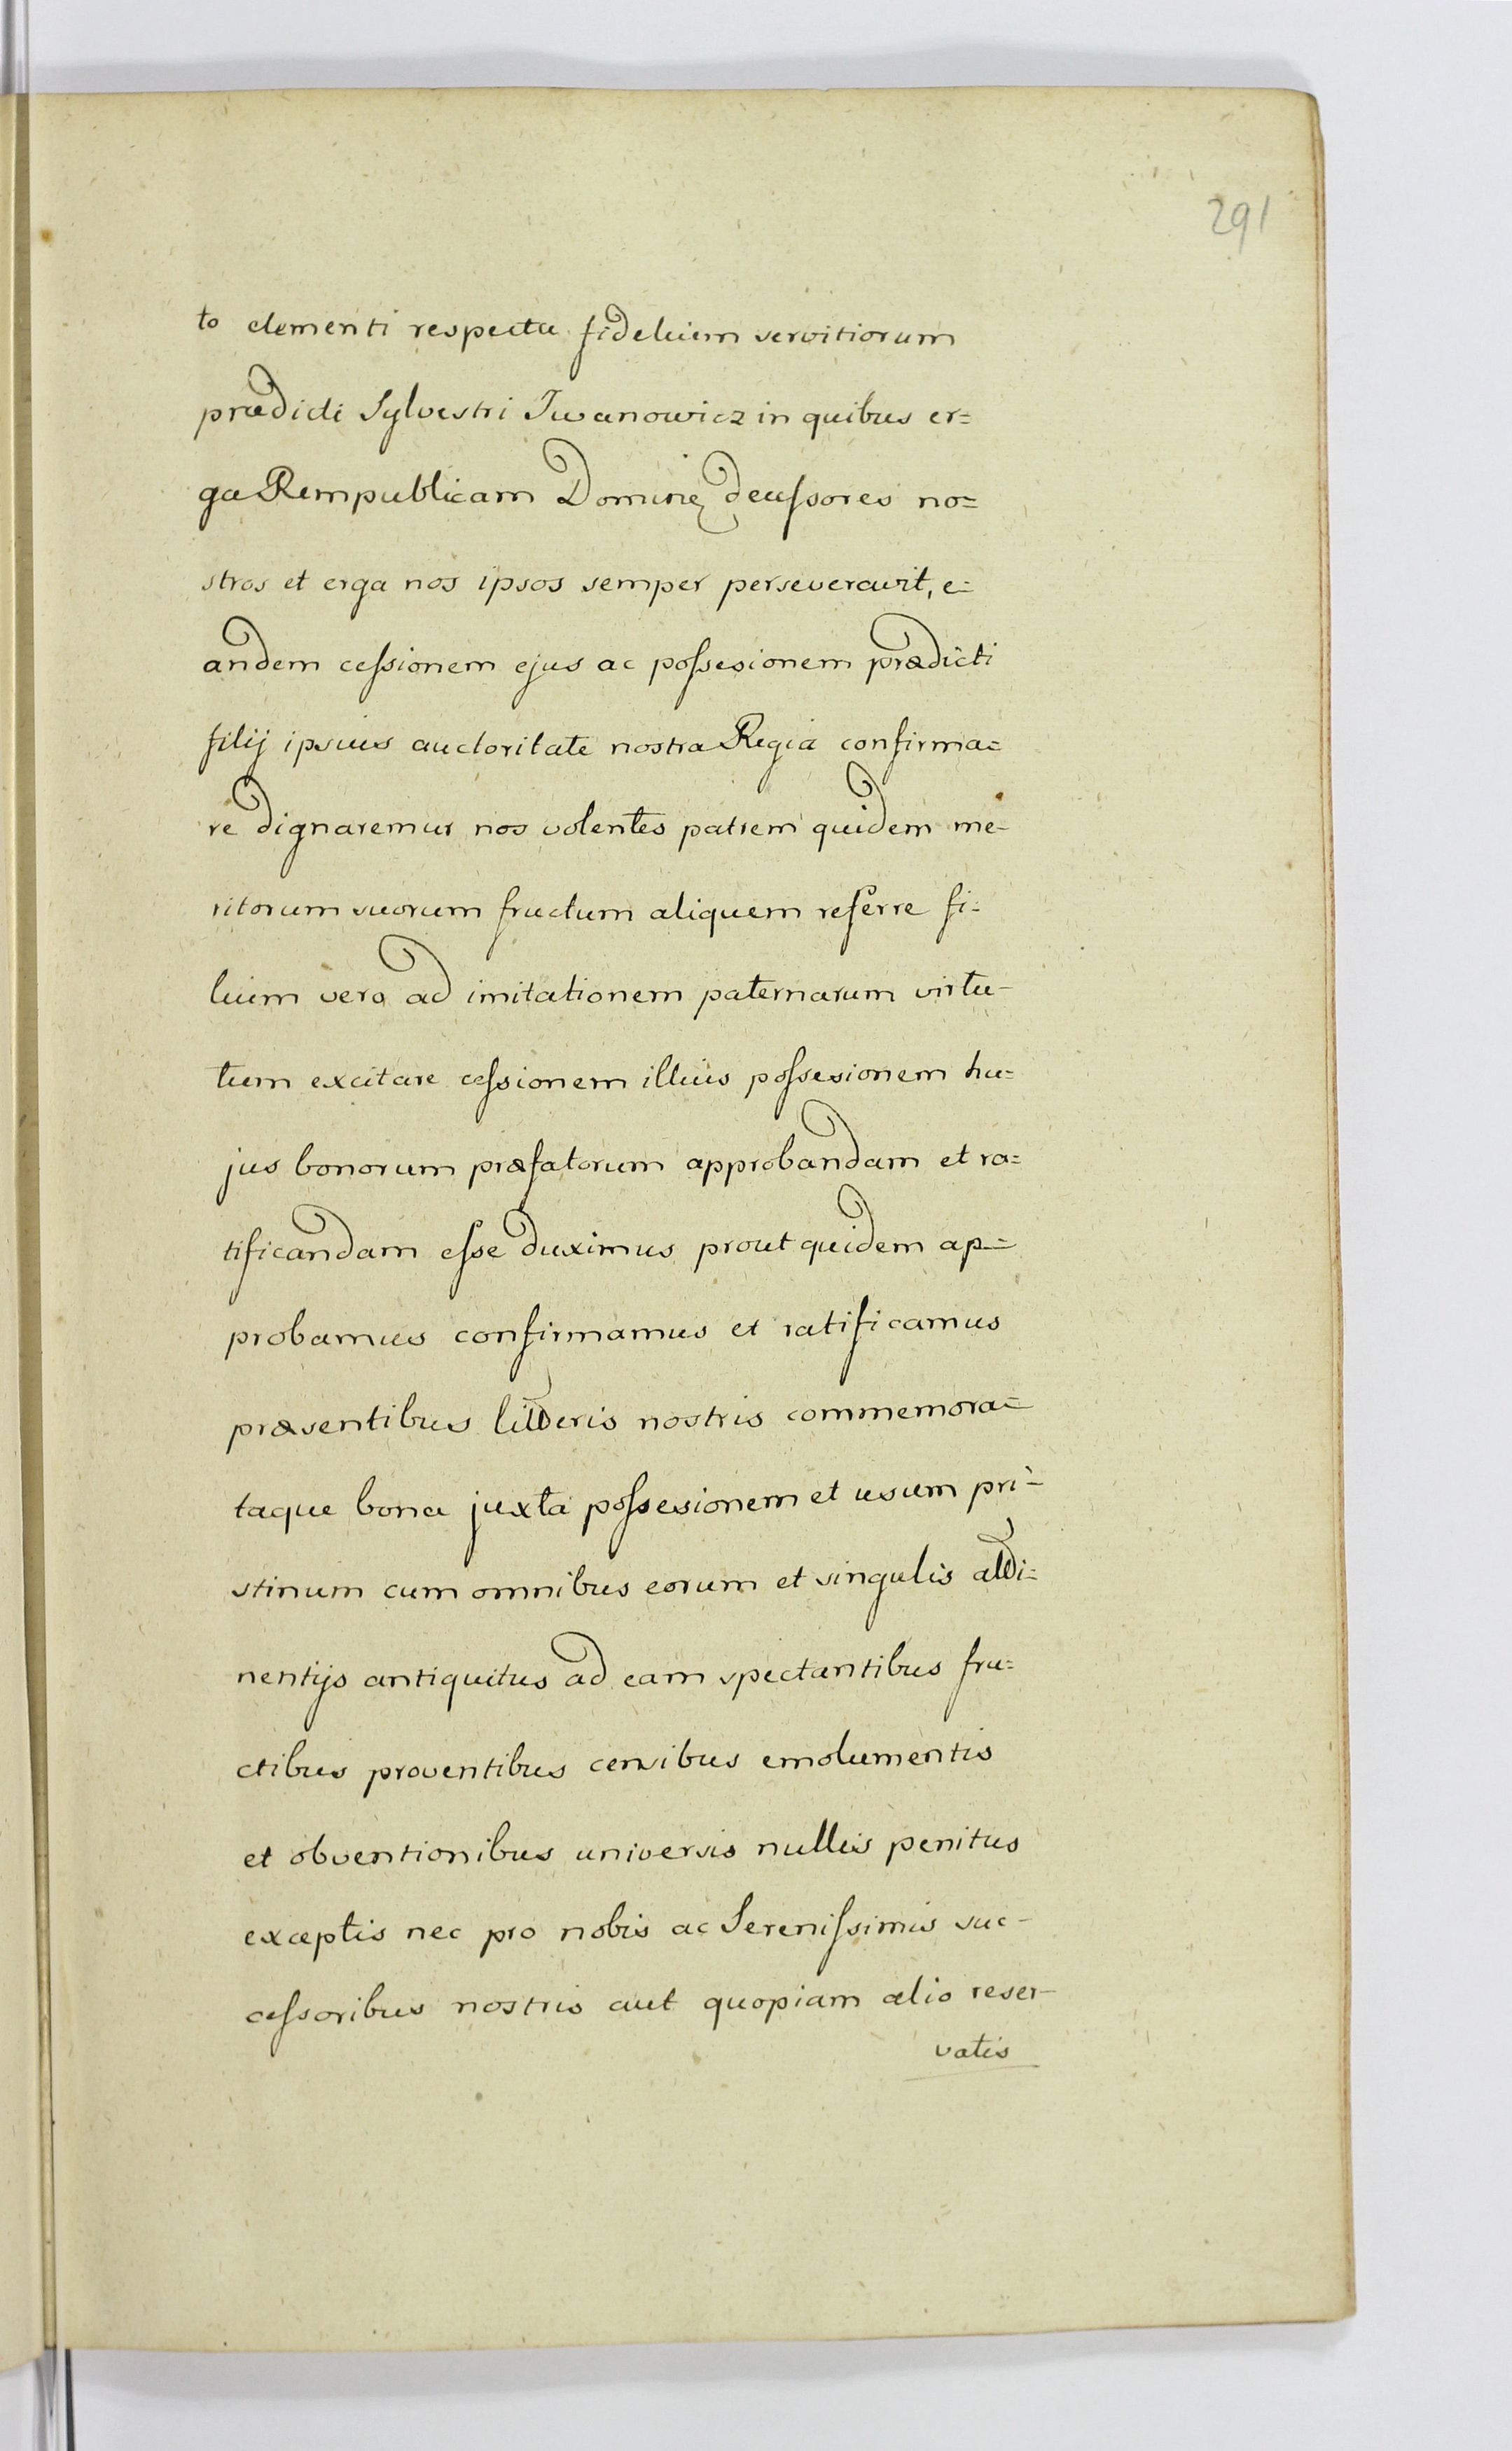 291
to clementi respectu fidelium servitiorum
prædicti Sylvestri Iwanowicz in quibus er=
ga Rempublicam Domine decessores no=
stros et erga nos ipsos semper perseveravit, e=
andem cessionem ejus ac possesionem prædicti
filij ipsius auctoritate nostra Regia confirma=
re dignaremur nos volentes patrem quidem me-
ritorum suorum fructum aliquem referre fi=
lium vero ad imitationem paternarum virtu-
tum excitare cessionem illius possesionem hu=
jus bonorum præfatorum approbandam et ra=
tificandam esse duximus prout quidem ap=
probamus confirmamus et ratificamus
præsentibus litteris nostris commemora=
taque bona juxta possesionem et usum pri-
stinum cum omnibus eorum et singulis atti=
nentijs antiquitus ad eam spectantibus fru=
ctibus proventibus censibus emolumentis
et obventionibus universis nullis penitus
exceptis nec pro nobis ac Serenissimis suc-
cessoribus nostris aut quopiam alio reser-
vatis